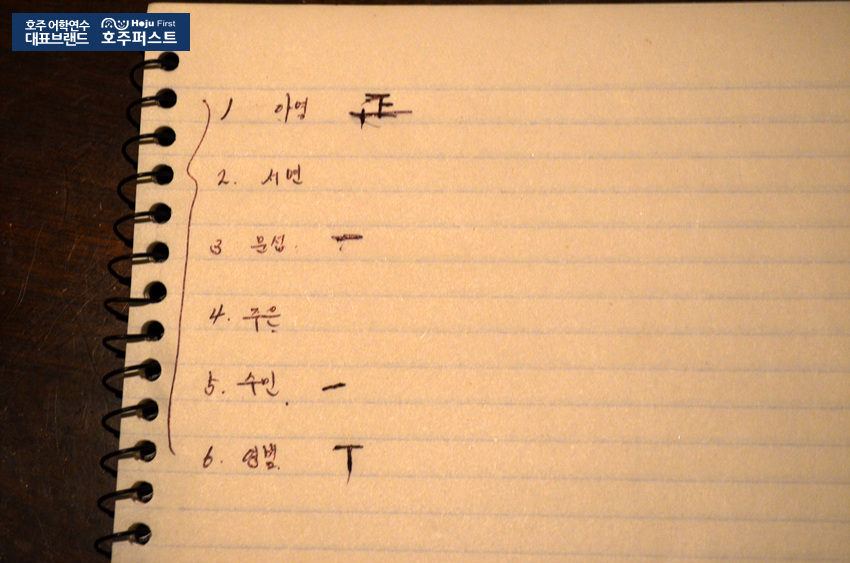 호주 어학연수
대표브랜드
Hoju First
호주퍼스트
1 아영 正
2. 서연
3 문섭. 一
4. 주은
5. 수민 一
6. 영범 T